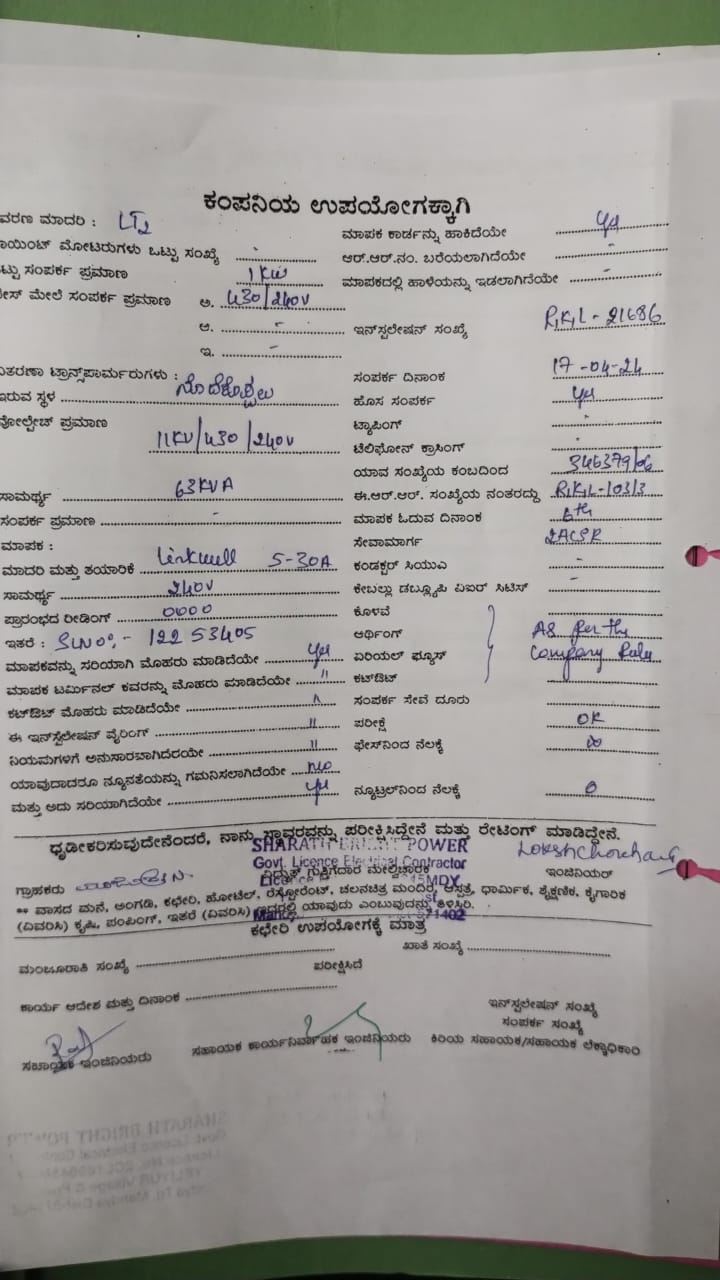 ಕಂಪನಿಯ ಉಪಯೋಗಕ್ಕಾಗಿ
ವರಣ ಮಾದರಿ : LT2 ಮಾಪಕ ಕಾರ್ಡನ್ನು ಹಾಕಿದೆಯೇ ys
ಾಯಿಂಟ್ ಮೋಟರುಗಳು ಒಟ್ಟು ಸಂಖ್ಯೆ - ಆರ್.ಆರ್.ನಂ. ಬರೆಯಲಾಗಿದೆಯೇ -
ಟ್ಟು ಸಂಪರ್ಕ ಪ್ರಮಾಣ 1 KW ಮಾಪಕದಲ್ಲಿ ಹಾಳೆಯನ್ನು ಇಡಲಾಗಿದೆಯೇ -
ೇಸ್ ಮೇಲೆ ಸಂಪರ್ಕ ಪ್ರಮಾಣ ಅ. 430/240V
ಆ. - ಇನ್‌ಸ್ಟಲೇಷನ್ ಸಂಖ್ಯೆ R,K,L - 21686
ಇ. -
ವಿತರಣಾ ಟ್ರಾನ್ಸ್‌ಫಾರ್ಮರುಗಳು : ಸಂಪರ್ಕ ದಿನಾಂಕ 17-04-24
ಇರುವ ಸ್ಥಳ ಹೊಸ ಸಂಪರ್ಕ ys
ವೋಲ್ಟೇಜ್ ಪ್ರಮಾಣ 11KV/430/240V ಟ್ಯಾಪಿಂಗ್ -
ಟೆಲಿಫೋನ್ ಕ್ರಾಸಿಂಗ್ -
ಯಾವ ಸಂಖ್ಯೆಯ ಕಂಬದಿಂದ 346379/06
ಸಾಮರ್ಥ್ಯ 63KVA ಈ.ಆರ್.ಆರ್. ಸಂಖ್ಯೆಯ ನಂತರದ್ದು R,K,L-10313
ಸಂಪರ್ಕ ಪ್ರಮಾಣ - ಮಾಪಕ ಓದುವ ದಿನಾಂಕ 6th
ಮಾಪಕ : ಸೇವಾಮಾರ್ಗ 2ACSR
ಮಾದರಿ ಮತ್ತು ತಯಾರಿಕೆ Linkwell 5-30A ಕಂಡಕ್ಟರ್ ಸಿಯುಎ -
ಸಾಮರ್ಥ್ಯ 240V ಕೇಬಲ್ಲು ಡಬ್ಲ್ಯೂಪಿ ವಿಐರ್ ಸಿಟಿಸ್ -
ಪ್ರಾರಂಭದ ರೀಡಿಂಗ್ 0000 ಕೊಳವೆ
ಇತರೆ : SLNO:- 12253405 ಅರ್ಥಿಂಗ್ As per the
ಮಾಪಕವನ್ನು ಸರಿಯಾಗಿ ಮೊಹರು ಮಾಡಿದೆಯೇ ys ಏರಿಯಲ್ ಫ್ಯೂಸ್ Company Rule
ಮಾಪಕ ಟರ್ಮಿನಲ್ ಕವರನ್ನು ಮೊಹರು ಮಾಡಿದೆಯೇ " ಕಟ್‌ಔಟ್
ಕಟ್‌ಔಟ್ ಮೊಹರು ಮಾಡಿದೆಯೇ " ಸಂಪರ್ಕ ಸೇವೆ ದೂರು
ಈ ಇನ್‌ಸ್ಟಲೇಷನ್ ವೈರಿಂಗ್ " ಪರೀಕ್ಷೆ OK
ನಿಯಮಗಳಿಗೆ ಅನುಸಾರವಾಗಿದೆರಯೇ " ಫೇಸ್‌ನಿಂದ ನೆಲಕ್ಕೆ ∞
ಯಾವುದಾದರೂ ನ್ಯೂನತೆಯನ್ನು ಗಮನಿಸಲಾಗಿದೆಯೇ no
ಮತ್ತು ಅದು ಸರಿಯಾಗಿದೆಯೇ ys ನ್ಯೂಟ್ರಲ್‌ನಿಂದ ನೆಲಕ್ಕೆ 0
ಧೃಢೀಕರಿಸುವುದೇನೆಂದರೆ, ನಾನು ಸ್ಥಾವರವನ್ನು ಪರೀಕ್ಷಿಸಿದ್ದೇನೆ ಮತ್ತು ರೇಟಿಂಗ್ ಮಾಡಿದ್ದೇನೆ.
SHARATH BRIGHT POWER
Govt. Licence Electrical Contractor
ಗ್ರಾಹಕರು ವಿದ್ಯುತ್ ಗುತ್ತಿಗೆದಾರ ಮೇಲ್ವಿಚಾರಕ ಇಂಜಿನಿಯರ್
** ವಾಸದ ಮನೆ, ಅಂಗಡಿ, ಕಛೇರಿ, ಹೋಟೆಲ್, ರೆಸ್ಟೋರೆಂಟ್, ಚಲನಚಿತ್ರ ಮಂದಿರ, ಆಸ್ಪತ್ರೆ, ಧಾರ್ಮಿಕ, ಶೈಕ್ಷಣಿಕ, ಕೈಗಾರಿಕ
(ವಿವರಿಸಿ) ಕೃಷಿ, ಪಂಪಿಂಗ್, ಇತರೆ (ವಿವರಿಸಿ) ಇದರಲ್ಲಿ ಯಾವುದು ಎಂಬುವುದನ್ನು ತಿಳಿಸಿರಿ.
ಕಛೇರಿ ಉಪಯೋಗಕ್ಕೆ ಮಾತ್ರ
ಮಂಜೂರಾತಿ ಸಂಖ್ಯೆ ಪರೀಕ್ಷಿಸಿದೆ ಖಾತೆ ಸಂಖ್ಯೆ
ಕಾರ್ಯ ಆದೇಶ ಮತ್ತು ದಿನಾಂಕ
ಇನ್‌ಸ್ಟಲೇಷನ್ ಸಂಖ್ಯೆ
ಸಂಪರ್ಕ ಸಂಖ್ಯೆ
ಸಹಾಯಕ ಇಂಜಿನಿಯರು ಸಹಾಯಕ ಕಾರ್ಯನಿರ್ವಾಹಕ ಇಂಜಿನಿಯರು ಕಿರಿಯ ಸಹಾಯಕ/ಸಹಾಯಕ ಲೆಕ್ಕಾಧಿಕಾರಿ